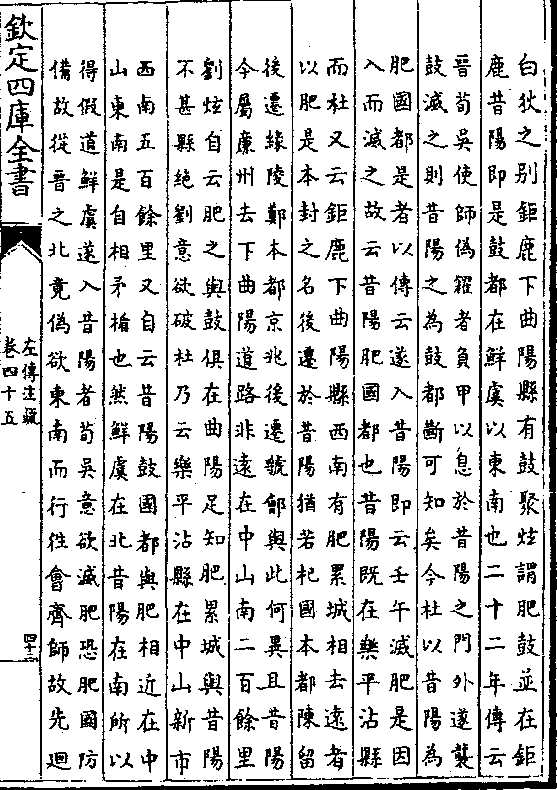 白狄之别鉅鹿下曲陽縣有鼓聚炫謂肥鼓並在鉅
鹿昔陽即是鼓都在鮮虞以東南也二十二年傳云
晉荀吳使師偽糴者負甲以息於昔陽之門外遂襲
鼓滅之則昔陽之為鼓都斷可知矣今杜以昔陽為
肥國都是者以傳云遂入昔陽即云壬午滅肥是因
入而滅之故云昔陽肥國都也昔陽既在樂平沾縣
而杜又云鉅鹿下曲陽縣西南有肥累城相去遠者
以肥是本封之名後遷於昔陽猶若杞國本都陳留
後遷緣陵鄭本都京兆後遷虢鄶與此何異且昔陽
今屬廉州去下曲陽道路非遠在中山南二百餘里
劉炫自云肥之與鼓俱在曲陽足知肥累城與昔陽
不甚縣絶劉意欲破杜乃云樂平沾縣在中山新市
西南五百餘里又自云昔陽鼓國都與肥相近在中
山東南是自相矛楯也然鮮虞在北昔陽在南所以
得假道鮮虞遂入昔陽者荀吳意欲滅肥恐肥國防
備故從晉之北竟偽欲東南而行往會齊師故先迴
欽定四庫全書
左傳注疏
卷四十五